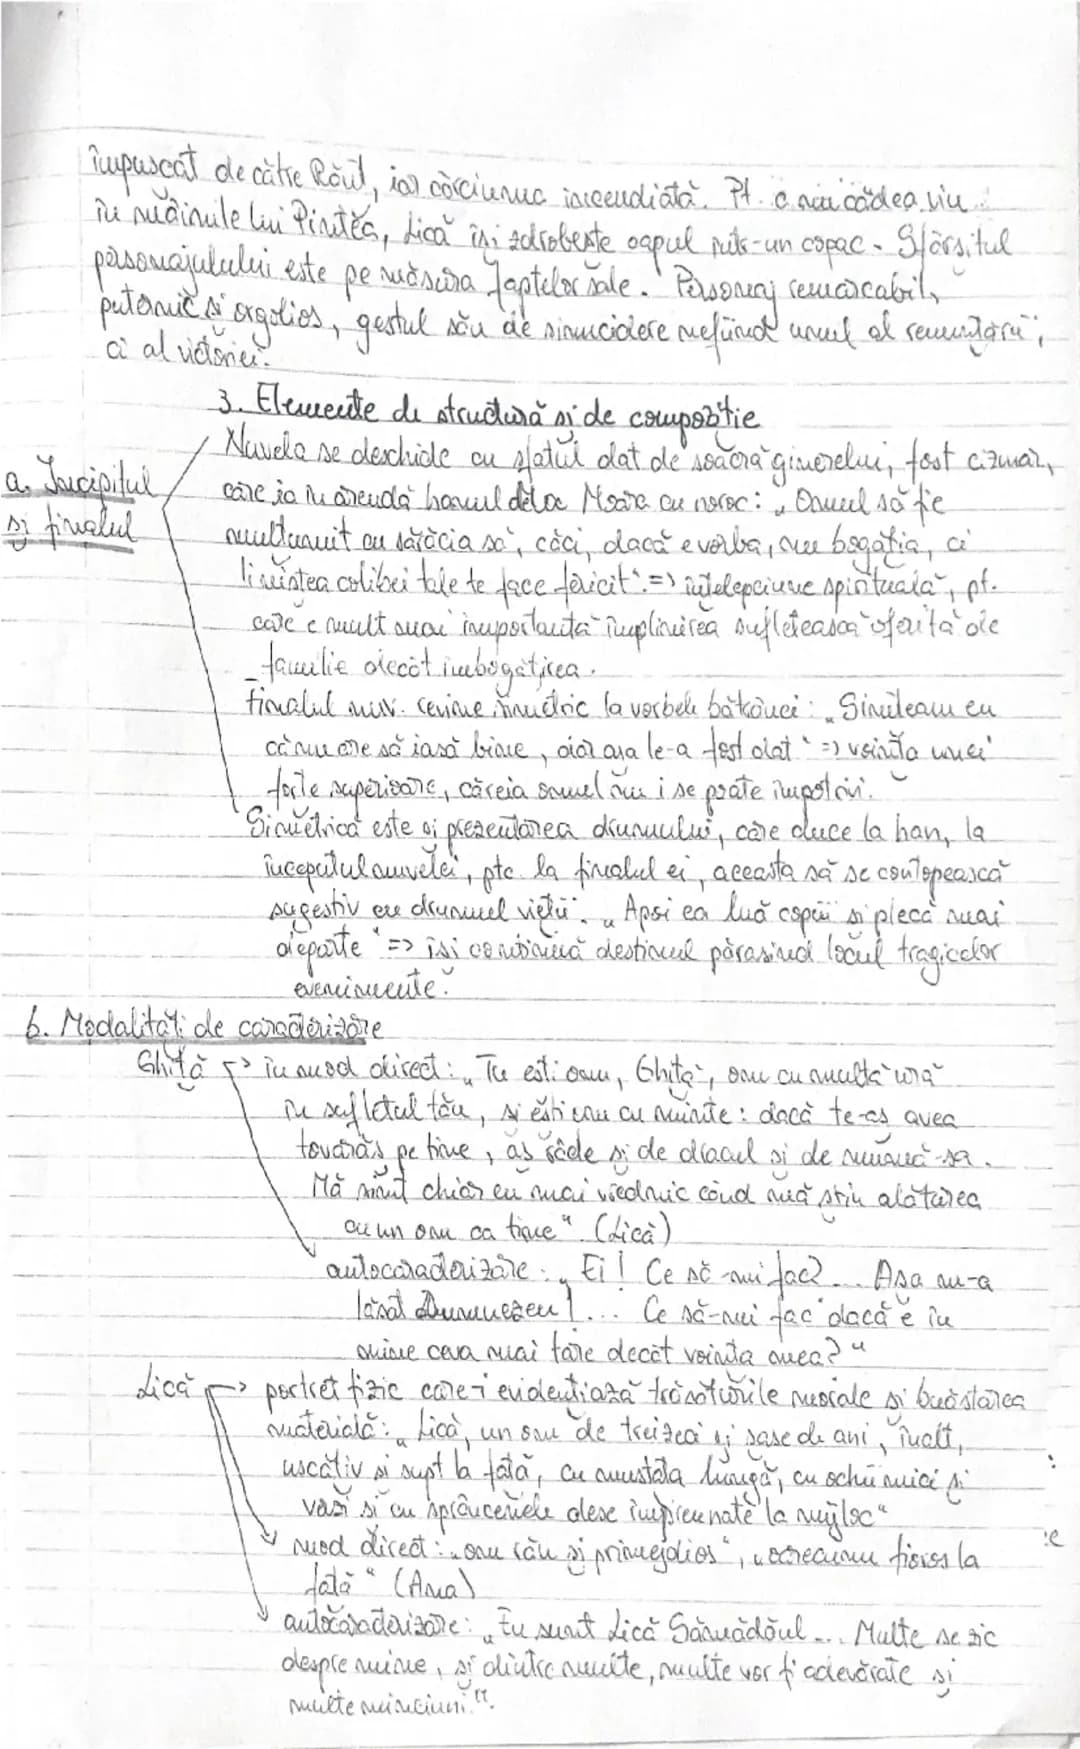 împușcat de către Răuț, iar cârciuma incendiată. Pt. a nu cădea viu
în mâinile lui Pintea, Lică își zdrobește capul într-un copac. Sfârșitul
personajului este pe măsura faptelor sale. Personaj remarcabil,
puternic și orgolios, gestul său de sinucidere nefiind unul al renunțării,
ci al victoriei.
3. Elemente de structură și de compoziție
a. Incipitul
și finalul
Nuvela se deschide cu sfatul dat de soacră ginerelui, fost cizmar,
care ia în arendă hanul de la Moara cu noroc: „Omul să fie
mulțumit cu sărăcia sa, căci, dacă e vorba, nu bogăția, ci
liniștea colibei tale te face fericit". => înțelepciune spirituală, pt.
care e mult mai importantă împlinirea sufletească oferită de
familie decât îmbogățirea.
Finalul nuv. revine simetric la vorbele bătrânei: „Simțeam eu
că nu are să iasă bine, dar așa le-a fost dat" => voința unei
forțe superioare, căreia omul nu i se poate împotrivi.
Simetrică este și prezentarea drumului, care duce la han, la
începutul nuvelei, ptc. la finalul ei, aceasta să se contopească
sugestiv cu drumul vieții. „Apoi ea luă copiii și plecă mai
departe" => își continuă destinul părăsind locul tragicelor
evenimente.
b. Modalități de caracterizare
Ghiță -> în mod direct: „Tu ești om, Ghiță, om cu multă ură
în sufletul tău, și ești om cu minte: dacă te-aș avea
tovarăș pe tine, aș râde și de dracul și de mumă-sa.
Mă simt chiar eu mai vrednic când mă știu alăturea
cu un om ca tine". (Lică)
autocaracterizare: „Ei! Ce să-mi fac?... Așa m-a
lăsat Dumnezeu!... Ce să-mi fac dacă e în
mine ceva mai tare decât voința mea?"
Lică -> portret fizic care-i evidențiază trăsăturile morale și bunăstarea
materială: „Lică, un om de treizeci și șase de ani, înalt,
uscățiv și supt la față, cu mustața lungă, cu ochii mici și
verzi și cu sprâncenele dese împreunate la mijloc"
mod direct: „om rău și primejdios", „oarecum fioros la
față" (Ana)
autocaracterizare: „Eu sunt Lică Sămădăul... Multe se zic
despre mine, și dintre multe, multe vor fi adevărate și
multe minciuni".